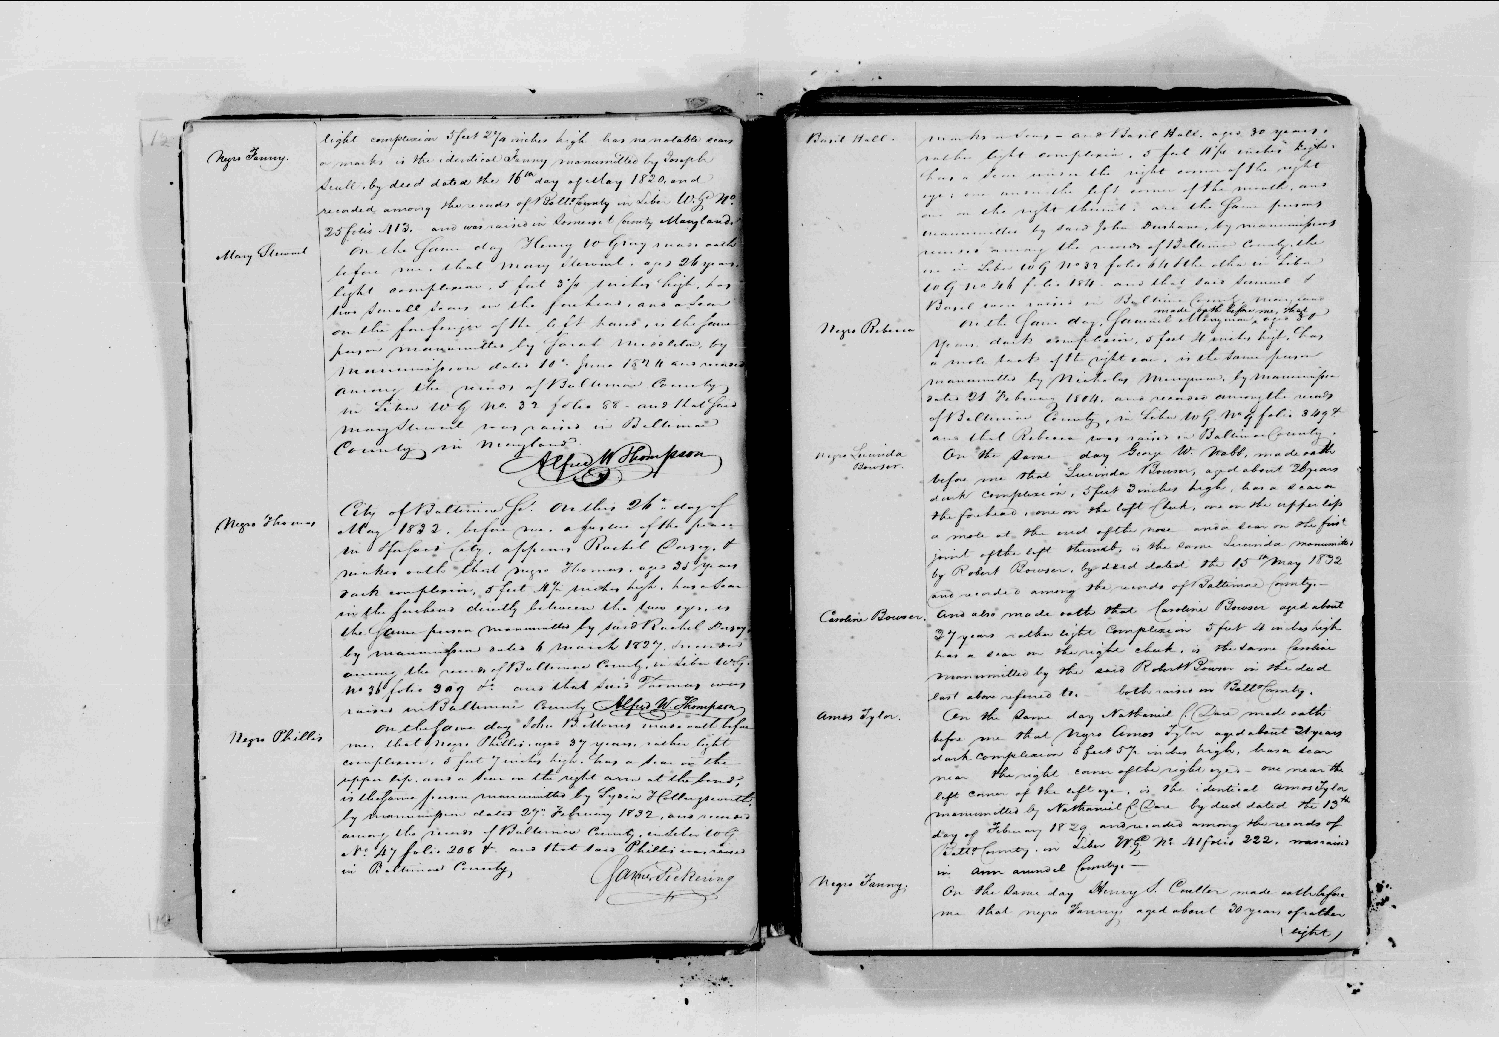 Negro Fanny.
light complexion 5 feet 2 1/2 inches high has no notable scars
or marks is the identical Fanny manumitted by Joseph
Scull, by deed dated the 16th day of May 1820, and
recorded among the records of Balto County in Liber W.G. No.
25 folio 113. and was raised in Somerset County Maryland.
Mary Stewart
On the same day Henry W Gray made oath
before me, that Mary Stewart, aged 26 years,
light complexion, 5 feet 3 1/2 inches high, has
two small scars in the forehead, and a scar
on the forefinger of the left hand, is the same
person manumitted by Sarah by
manumission dated 10th June 1824 and recorded
among the records of Baltimore County,
in Liber W G No. 32 folio 88 - and that said
Mary Stewart was raised in Baltimore
County, in Maryland.
Alfred W Thompson
Negro Thomas
City of Baltimore Sc. On this 26th day of
May 1832, before me, a justice of the peace
in & for said City, appears Rachel Dorsey, &
makes oath that negro Thomas, aged 35 years
dark complexion, 5 feet inches high, has a scar
in the forehead directly between the two eyes, is
the same person manumitted by said Rachel Dorsey,
by manumission dated 4 March 1827, recorded
among the records of Baltimore County, in Liber W G.
No 36 folio 309 &c. and that said Thomas was
raised in Baltimore County Alfred W. Thompson
Negro Phillis
On the same day John made oath before
me, that Negro Phillis, aged 37 years, rather light
complexion, 5 feet inches high, has a scar on the
upper lip, and a scar on the right arm at the bend,
is the same person manumitted by Lydia Hollingsworth,
by manumission dated 27th February 1832, and recorded
among the records of Baltimore County, in Liber W G
No. 47 folio 208 & and that said Phillis was raised
in Baltimore County,
James Pickering
Basil Hall.
marks or scars - and Basil Hall, aged 30 years,
rather light complexion, 5 feet inches high,
has a scar under the right corner of the right
eye, one under the left corner of the mouth, and
one on the right thumb; are the same persons
manumitted by said John by manumissions
recorded among the records of Baltimore County, the
one in Liber W G No 32 folio the other in Liber
W G No 46 folio 184. and that said Samuel &
Basil were raised in Baltimore County, Maryland
Negro Rebecca
made oath before me, that
On the same day, Samuel aged 30
years, dark complexion, 5 feet 4 inches high, has
a mole back of the right ear, is the same person
manumitted by Nicholas by manumission
dated 21 February 1804, and recorded among the records
of Baltimore County, in Liber W G No 9 folio 349 &
and that Rebecca was raised in Baltimore County.
Negro Lucinda
Bowser.
On the same day George W. Nabb, made oath
before me that Lucinda Bowser, aged about 26 years
dark complexion, 5 feet 3 inches high, has a scar on
the forehead, one on the left cheek, one on the upper lip
a mole at the end of the nose and a scar on the first
joint of the left thumb, is the same Lucinda manumitted
by Robert Bowser, by deed dated the 15th May 1832
and recorded among the records of Baltimore County.-
Caroline Bowser.
And also made oath that Caroline Bowser aged about
37 years rather light complexion 5 feet 4 inches high
has a scar on the right cheek, is the same Caroline
manumitted by the said Robert Bowser in the deed
last above referred to. both raised in Balto County.
Amos Tylor.
On the same day Nathaniel C Dare made oath
before me that Negro Amos Tylor aged about 21 years
dark complexion 5 feet 5 1/2 inches high, has a scar
near the right corner of the right eye - one near the
left corner of the left eye, is the identical Amos Tylor
manumitted by Nathaniel C Dare by deed dated the 13th
day of February 1829 and recorded among the records of
Balto County, in Liber W.G. No. 41 folio 222, was raised
in Ann Arundel County.-
Negro Fanny;
On the same day Henry S. Coulter made oath before
me that negro Fanny, aged about 30 years of rather
(light)